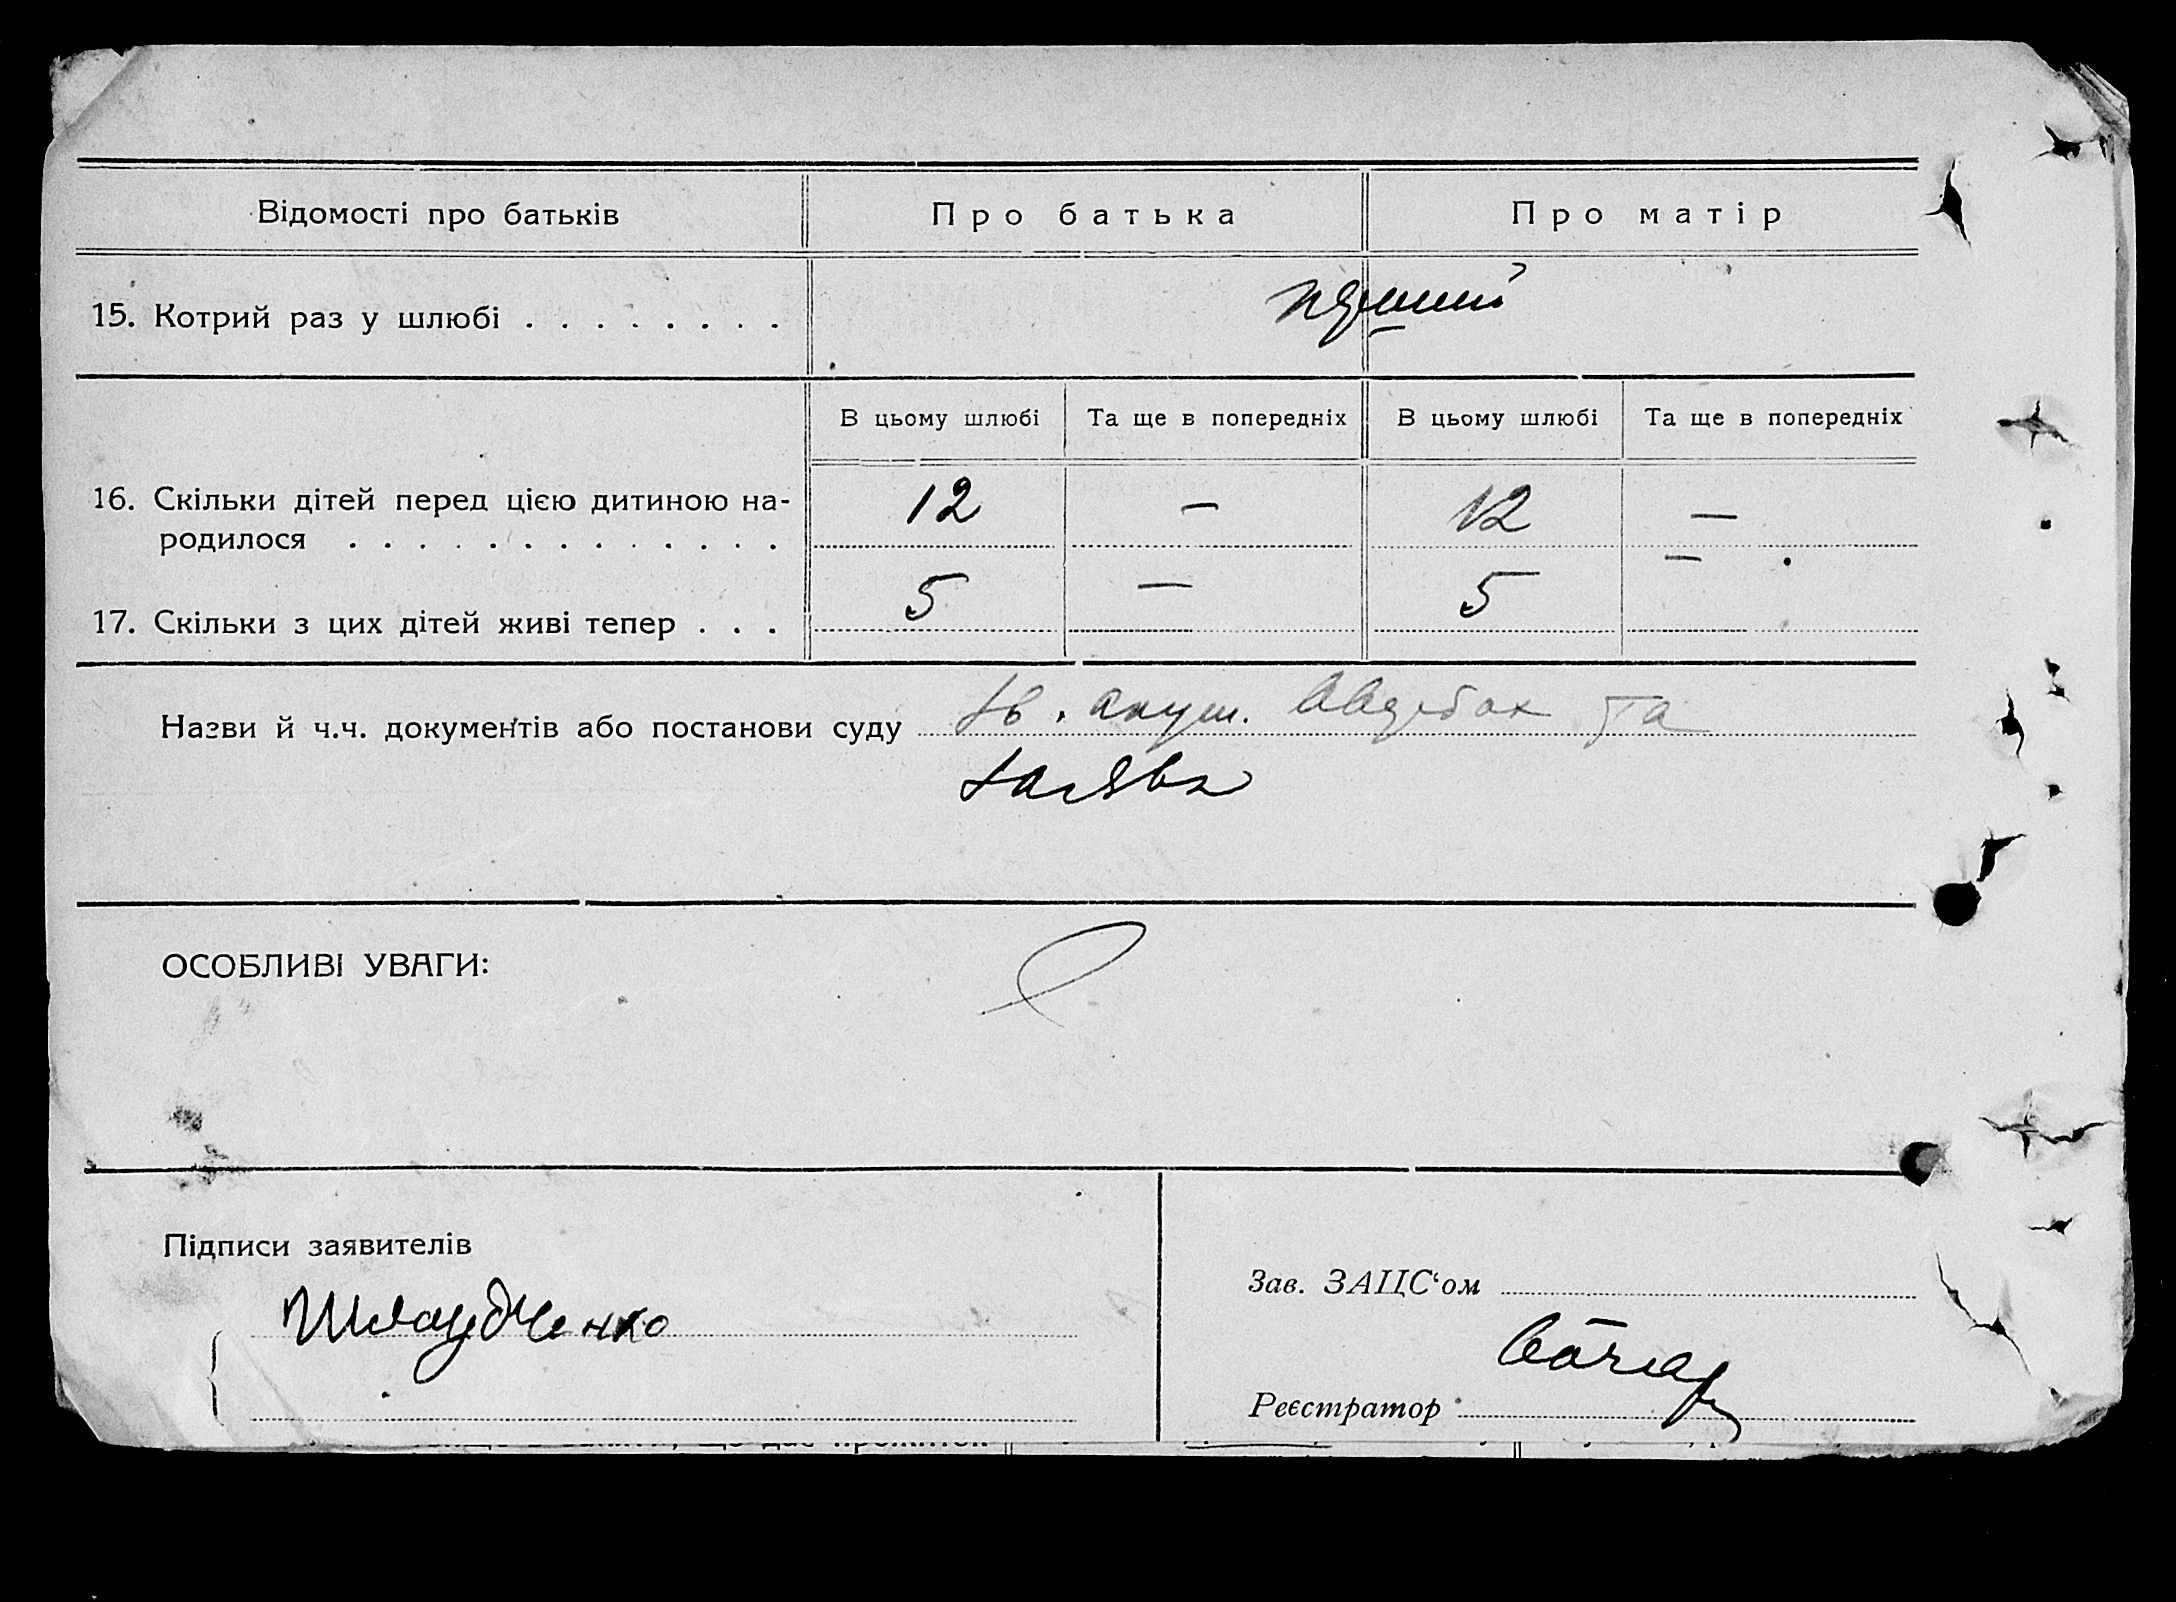 Відомості про батьків
Про батька
Про матір
15. Котрий раз у шлюбі . . . . . . . .
перший
В цьому шлюбі
Та ще в попередніх
В цьому шлюбі
Та ще в попередніх
16. Скільки дітей перед цією дитиною на-
родилося . . . . . . . . . . . . .
12
—
12
—
—
17. Скільки з цих дітей живі тепер . . .
5
—
5
Назви й ч.ч. документів або постанови суду
акуш. та
заява
ОСОБЛИВІ УВАГИ:
Підписи заявителів
Зав. ЗАЦС‘ом
Реєстратор